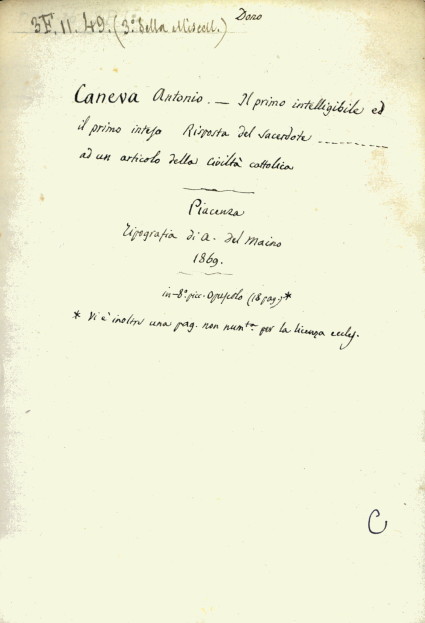 Dono
3F.II.49. (3º della Miscell.)
Caneva Antonio. — Il primo intelligibile ed
il primo inteso Risposta del sacerdote ----------
ad un articolo della Civiltà cattolica
Piacenza
Tipografia di A. del Maino
1869.
in-8º pic. Opuscolo (18 pag.)*
* Vi è inoltre una pag. non numta per la licenza eccles.
C